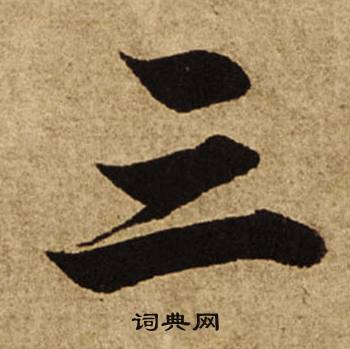 三
词典网